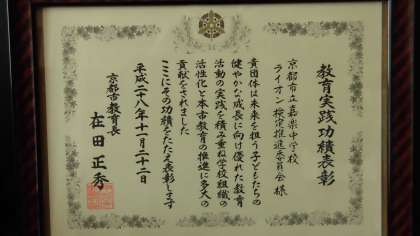 教育実践功績表彰
京都市立嘉楽中学校
ライオン検定推進委員会 様
貴団体は未来を担う子どもたちの
健やかな成長に向け優れた教育
活動の実践を積み重ね学校組織の
活性化と本市教育の推進に多大の
貢献をされました
ここにその功績をたたえ表彰します
平成二十八年十一月二十二日
京都市教育長
在田正秀